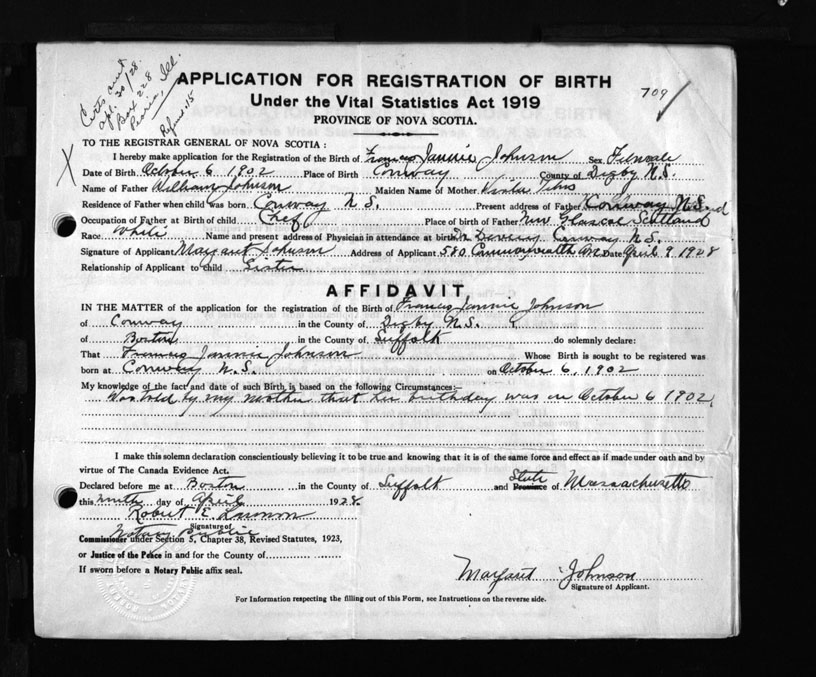 Certs sent
Apl. 30/28.
Box 228
Peoria, Ill.
Refund .15
709
APPLICATION FOR REGISTRATION OF BIRTH
Under the Vital Statistics Act 1919
PROVINCE OF NOVA SCOTIA.
TO THE REGISTRAR GENERAL OF NOVA SCOTIA:
I hereby make application for the Registration of the Birth of Frances Jannie Johnson Sex Female
Date of Birth October 6 1902 Place of Birth Conway County of Digby N.S.
Name of Father William Johnson Maiden Name of Mother
Residence of Father when child was born Conway N S. Present address of Father
Occupation of Father at Birth of child Chef Place of birth of Father New Glascol Scotland
Race White Name and present address of Physician in attendance at birth Conway N. S.
Signature of Applicant Margaret Johnson Address of Applicant 580 Commonwealth Av. Date April 9 1928
Relationship of Applicant to child Sister
AFFIDAVIT
IN THE MATTER of the application for the registration of the Birth of Frances Jannie Johnson
of Conway in the County of Digby N.S.
of Boston in the County of Suffolk do solemnly declare:
That Frances Jannie Johnson Whose Birth is sought to be registered was
born at Conway N.S. on October 6, 1902
My knowledge of the fact and date of such Birth is based on the following Circumstances:—
Was told by my mother that her birthday was on October 6 1902.
I make this solemn declaration conscientiously believing it to be true and knowing that it is of the same force and effect as if made under oath and by
virtue of The Canada Evidence Act.
Declared before me at Boston in the County of Suffolk and State Province of Massachusetts
this ninth day of April 1928.
Robert E.
Signature of
Notary Public
Commissioner under Section 5, Chapter 38, Revised Statutes, 1923,
or Justice of the Peace in and for the County of
If sworn before a Notary Public affix seal.
Margaret Johnson
Signature of Applicant.
For Information respecting the filling out of this Form, see Instructions on the reverse side.